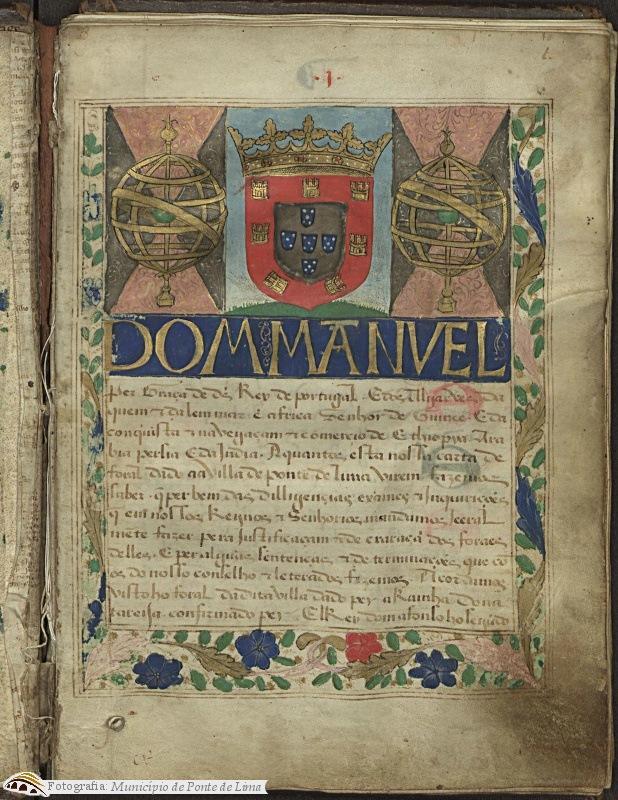 ·1·
DOM MANVEL
Per Graça de ds Rey de portugal . E dos Algarves da
quem & dalem mar e africa Senhor de Guinee . E da
conquista & navegaçam & comercio de Ethiopya . Ara
bia persia E da India . A quantos esta nossa carta de
foral dado aa Villa de ponte de lima virem fazemos
saber . q per bem das dilligencias exames & Inquirições
q em nossos Reynos & Senhorios mandamos jeeral
mete fazer pera justificaçam & de craraçã dos foraes
delles . E per alguũas sentenças & de terminações que co
os do nosso conselho & leterados fezemos
visto ho foral da dita villa dado per a Rainha dona
tareisa confirmado per ElRey dom afonso ho segũdo
Fotografia: Município de Ponte de Lima